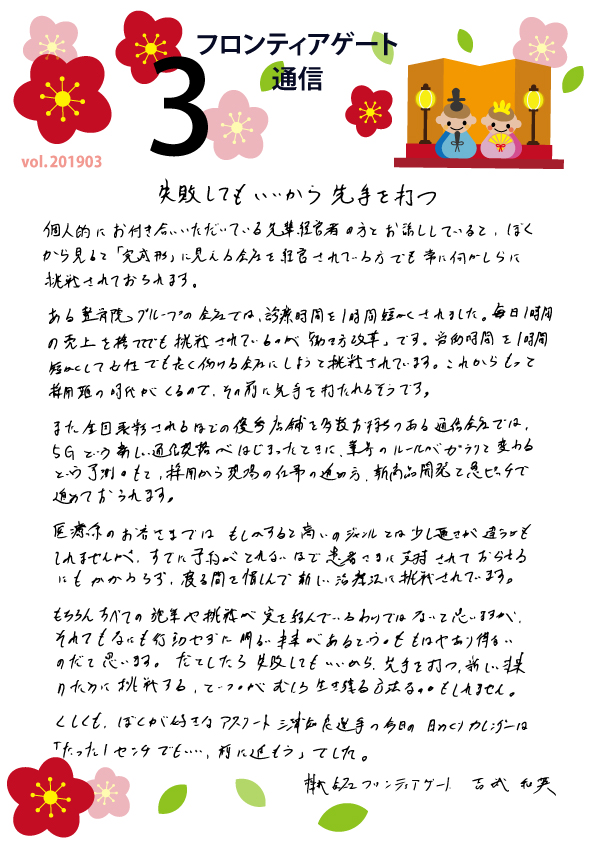 フロンティアゲート
通信
3
vol.201903
失敗してもいいから 先手を打つ
個人的にお付き合いいただいている先輩経営者の方とお話ししていると、ぼく
から見ると「完成形」に見える会社を経営されている方でも常に何かしらに
挑戦されておられます。
ある整骨院グループの会社では、診療時間を1時間短かくされました。毎日1時間
の売上を捨ててでも挑戦されているのが「働き方改革」です。労働時間を1時間
短かくして女性でも長く働ける会社にしようと挑戦されています。これからもって
採用難の時代がくるので、その前に先手を打たれるそうです。
また全国表彰されるほどの優秀店舗を多数お持ちのある通信会社では、
5Gという新しい通信規格がはじまったときに、業界のルールがガラリと変わる
という予測のもと、採用から現場の仕事の進め方、新商品開発と急ピッチで
進めておられます。
医療系のお客さまでは もしかすると高いのジャンルとは少し違さが違うかも
しれませんが、すでに予約がとれないほど患者さまに支持されておられる
にもかかわらず、寝る間を惜しんで新しい治療法に挑戦されています。
もちろんすべての改革や挑戦が実を結んでいるわけではないと思いますが、
それでもなにも行動せずに明るい未来があるというのももはやあり得ない
のだと思います。だとしたら失敗してもいいから、先手を打つ、新しい未来
のために挑戦する、というのがむしろ生き残る方法なのかもしれません。
くしくも、ぼくが好きなアスリート三浦知良選手の今日の日めくりカレンダーは
「たった1センチでもいい、前に進もう」でした。
株式会社フロンティアゲート 吉武 和英